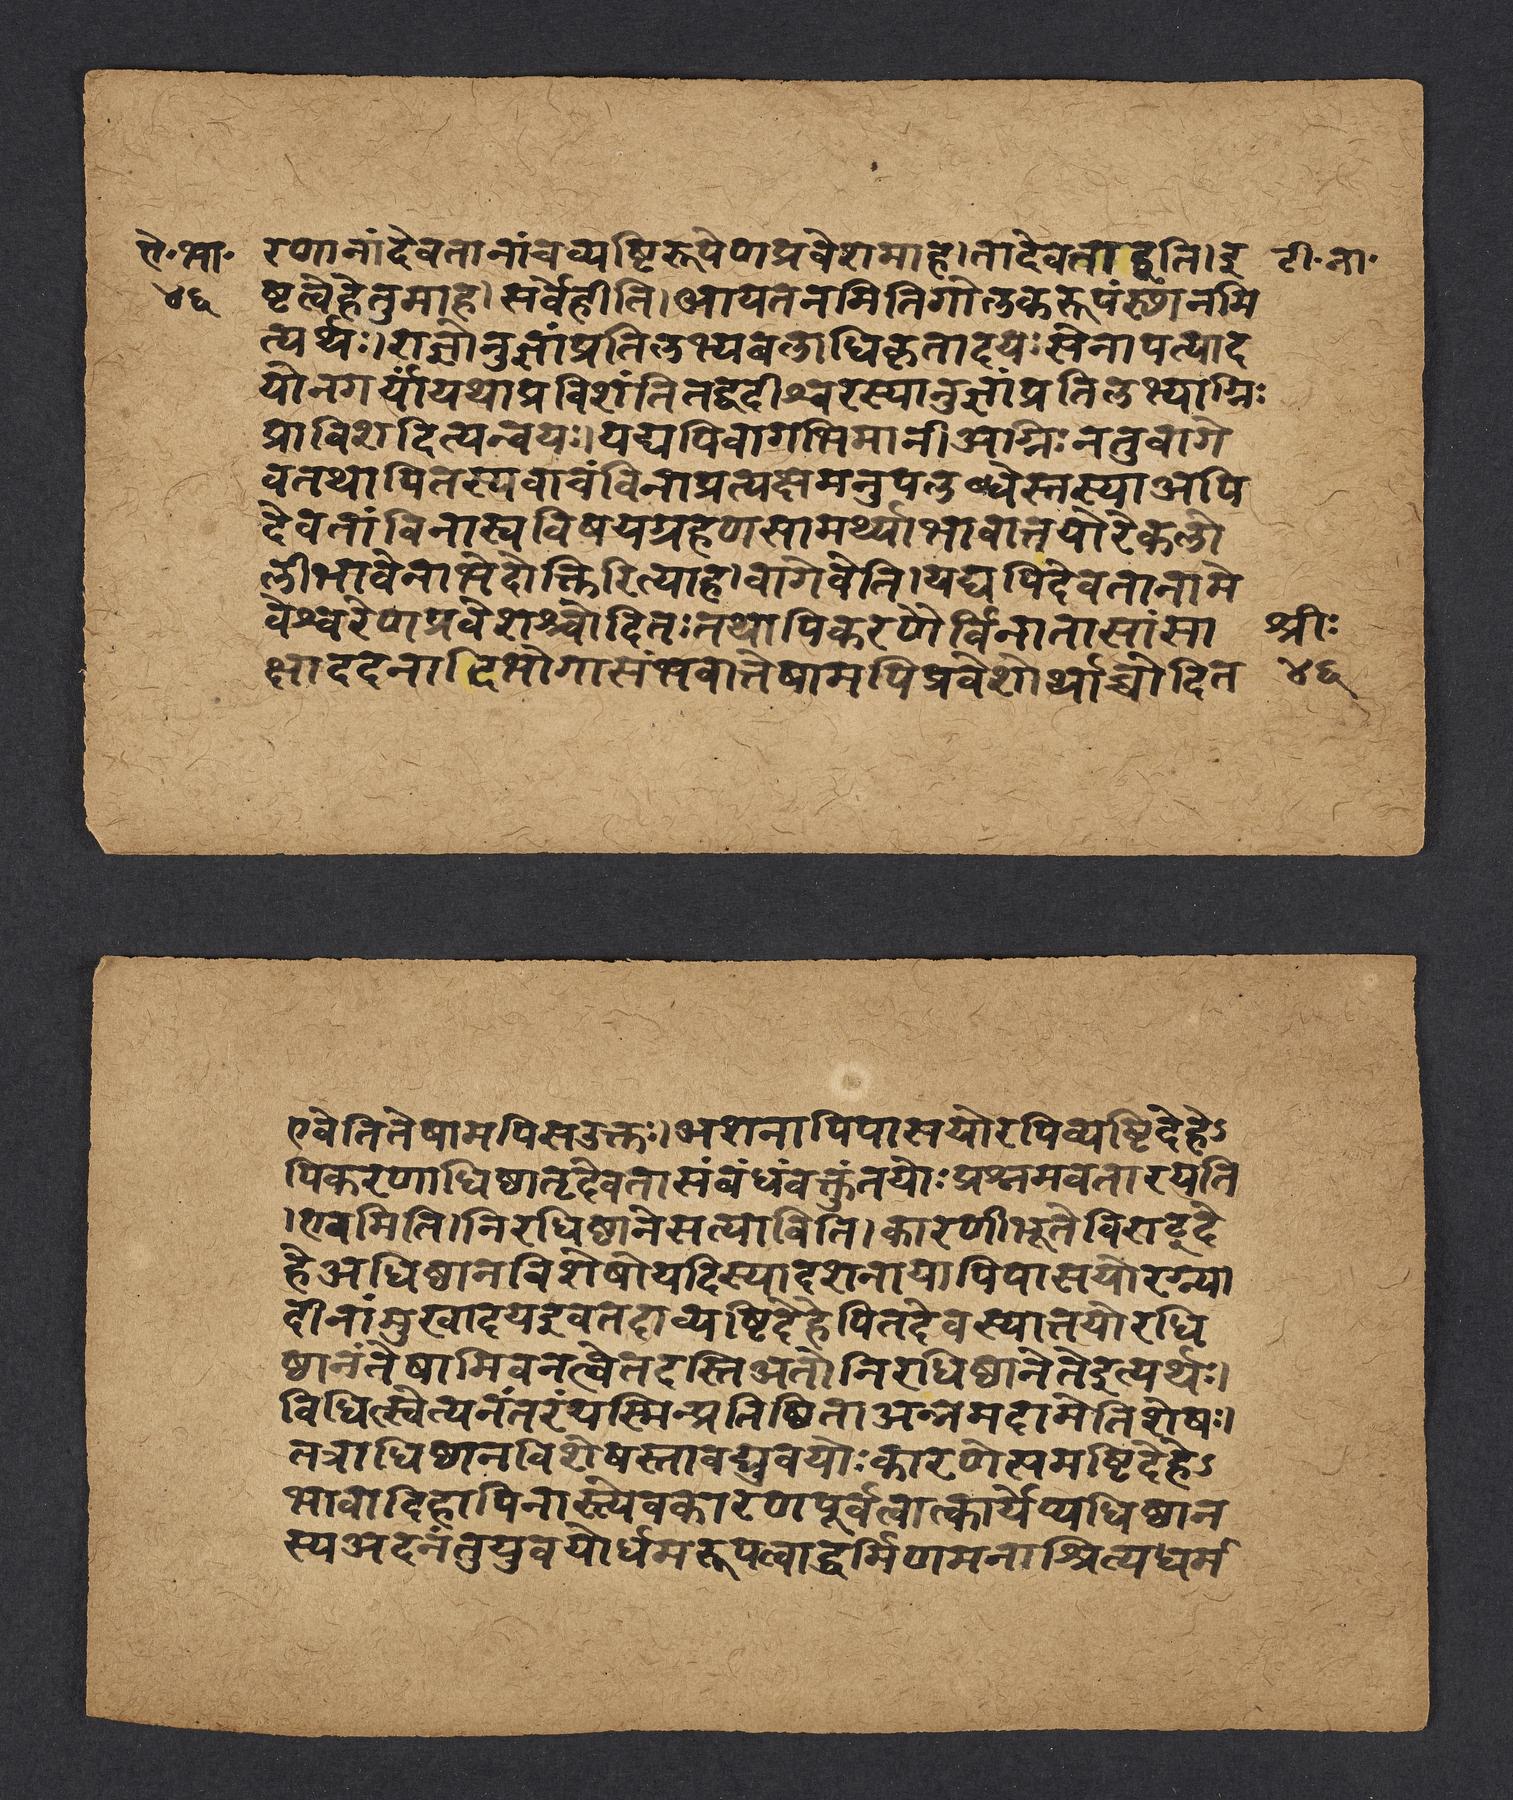 ऐ॰भा॰
४६
रणानांदेवतानांचव्यष्टिरूपेणप्रवेशमाह।तादेवताइति।इ
ष्टत्वेहेतुमाह।सर्वेहीति।आयतनमितिगोलकरूपंस्थानमि
त्यर्थः।राज्ञोनुज्ञांप्रतिलभ्यबलाधिकृतादयःसेनापत्याद
योनगर्यांयथाप्रविशंतितद्वदीश्वरस्यानुज्ञांप्रतिलभ्याग्निः
प्राविशदित्यन्वयः।यद्यपिवागभिमानीअग्निःनतुवागे
वतथापितस्यवाचंविनाप्रत्यक्षमनुपलब्धेस्तस्याअपि
देवतांविनास्वविषयग्रहणसामर्थ्याभावात्तयोरेकलो
लीभावेनाभेदोक्तिरित्याह।वागेवेति।यद्यपिदेवतानामे
वेश्वरेणप्रवेशश्चोदितःतथापिकरणैर्विनातासांसा
क्षाददनादिभोगासंभवात्तेषामपिप्रवेशोर्थाच्चोदित
टी॰ता॰
श्रीः
४६
एवेतितेषामपिसउक्तः।अशनापिपासयोरपिव्यष्टिदेहेऽ
पिकरणाधिष्ठातृदेवतासंबंधंवक्तुंतयोःप्रश्नमवतारयति
।एवमिति।निरधिष्ठानेसत्याविति।कारणीभूतेविराट्दे
हेअधिष्ठानविशेषोयदिस्यादशनायापिपासयोरग्न्या
दीनांमुखादयइवतदाव्यष्टिदेहेपितदेवस्यात्तयोरधि
ष्ठानंतेषामिवनत्वेतदस्तिअतोनिरधिष्ठानेतेइत्यर्थः।
विधित्स्वेत्यनंतरंयस्मिन्प्रतिष्ठिताअन्नमदामेतिशेषः।
तत्राधिष्ठानविशेषस्तावद्युवयोःकारणेसमष्टिदेहेऽ
भावादिहापिनास्त्येवकारणपूर्वत्वात्कार्येप्यधिष्ठान
स्यअदनंतुयुवयोर्धमरूपत्वाद्धर्मिणमनाश्रित्यधर्म